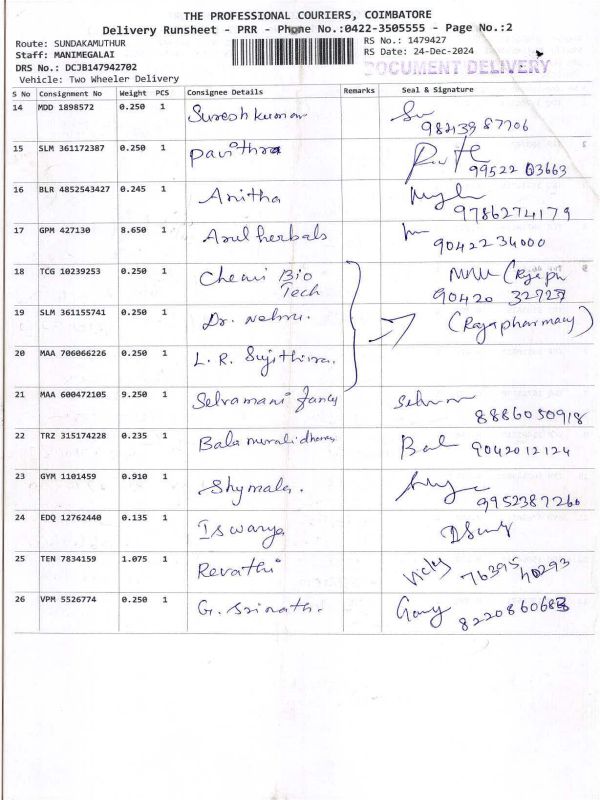 THE PROFESSIONAL COURIERS, COIMBATORE
Delivery Runsheet - PRR - Phone No.:0422-3505555 - Page No.:2
Route: SUNDAKAMUTHUR RS No.: 1479427
Staff: MANIMEGALAI RS Date: 24-Dec-2024
DRS No.: DCJB147942702 DOCUMENT DELIVERY
Vehicle: Two Wheeler Delivery
S No Consignment No Weight PCS Consignee Details Remarks Seal & Signature
14 MDD 1898572 0.250 1 Suresh kumar
98213987706
15 SLM 361172387 0.250 1 pavithra
99522 03663
16 BLR 4852543427 0.245 1 Anitha
9786274179
17 GPM 427130 8.650 1 Arul herbals
9042234000
18 TCG 10239253 0.250 1 Chemi Bio Tech
90420 32727
19 SLM 361155741 0.250 1 Dr. Nehru. (Raja pharmacy)
20 MAA 706066226 0.250 1 L. R. Sujithra.
21 MAA 600472105 9.250 1 Selvamani fancy
8886050918
22 TRZ 315174228 0.235 1 Bala muralidharan Bal 9042012124
23 GYM 1101459 0.910 1 Shymala.
9952387260
24 EDQ 12762440 0.135 1 Iswarya
25 TEN 7834159 1.075 1 Revathi Vicky 76395 40293
26 VPM 5526774 0.250 1 G. Srinath.
8220860683